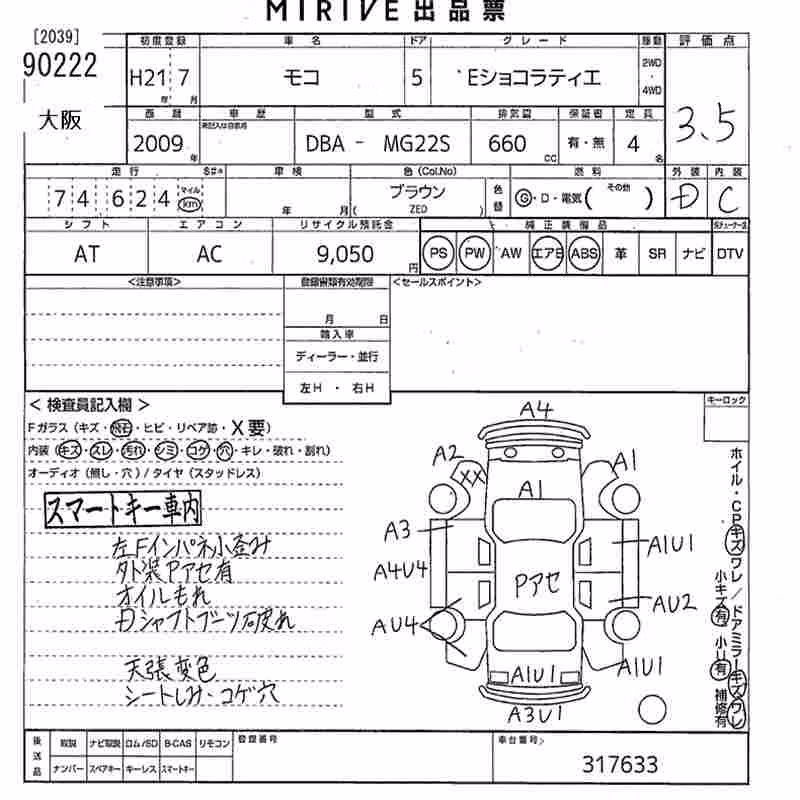 MIRIVE 出品票
[2039]
90222
大阪
初度登録 車名 ドア グレード 駆動 評価点
H21 7 モコ 5 Eショコラティエ 2WD・4WD
年 月
3.5
西暦 車歴 型式 排気量 保証書 定員
2009年 DBA - MG22S 660cc 有・無 4名
走行 車検 色(Col.No) 燃料 外装 内装
74 624 マイル km 年 月 ブラウン 色替 G・D・電気( その他 ) D C
( ZED )
シフト エアコン リサイクル預託金 純正装備品
AT AC 9,050円 PS PW AW エアB ABS 革 SR ナビ DTV
<注意事項> 登録書類有効期限 <セールスポイント>
月 日
輸入車
ディーラー・並行
左H ・ 右H
< 検査員記入欄 > キーロック
Fガラス (キズ・飛石・ヒビ・リペア跡・X要)
内装 (キズ・スレ・汚れ・シミ・コゲ・穴・キレ・破れ・割れ)
オーディオ (無し・穴) / タイヤ (スタッドレス)
スマートキー車内
左Fインパネ小歪み
外装Pアセ有
オイルもれ
Dシャフトブーツ破れ
天張変色
シートしみ・コゲ穴
A4
A2 XX A1
A1
A3 A1U1
A4U4 Pアセ
AU4 AU2
A1U1 A1U1
A3U1
ホイル・CPキズワレ / ドアミラーキズワレ
小キズ有 小U有 補修有
後送品 取説 ナビ取説 ロム/SD B-CAS リモコン 登録番号 車台番号
ナンバー スペアキー キーレス スマートキー 317633